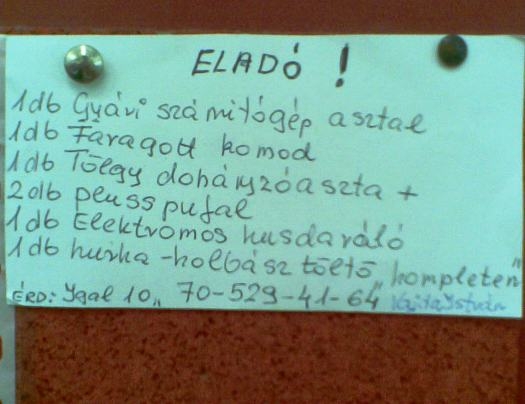 ELADÓ !
1db Gyári számitógép asztal
1db Faragott komod
1db Tölgy dohányzóaszta +
2db pluss pufal
1db Elektromos husdaráló
1db hurka-kolbász töltő "kompleten"
ÉRD: Igal 10,, 70-529-41-64" Vajda István